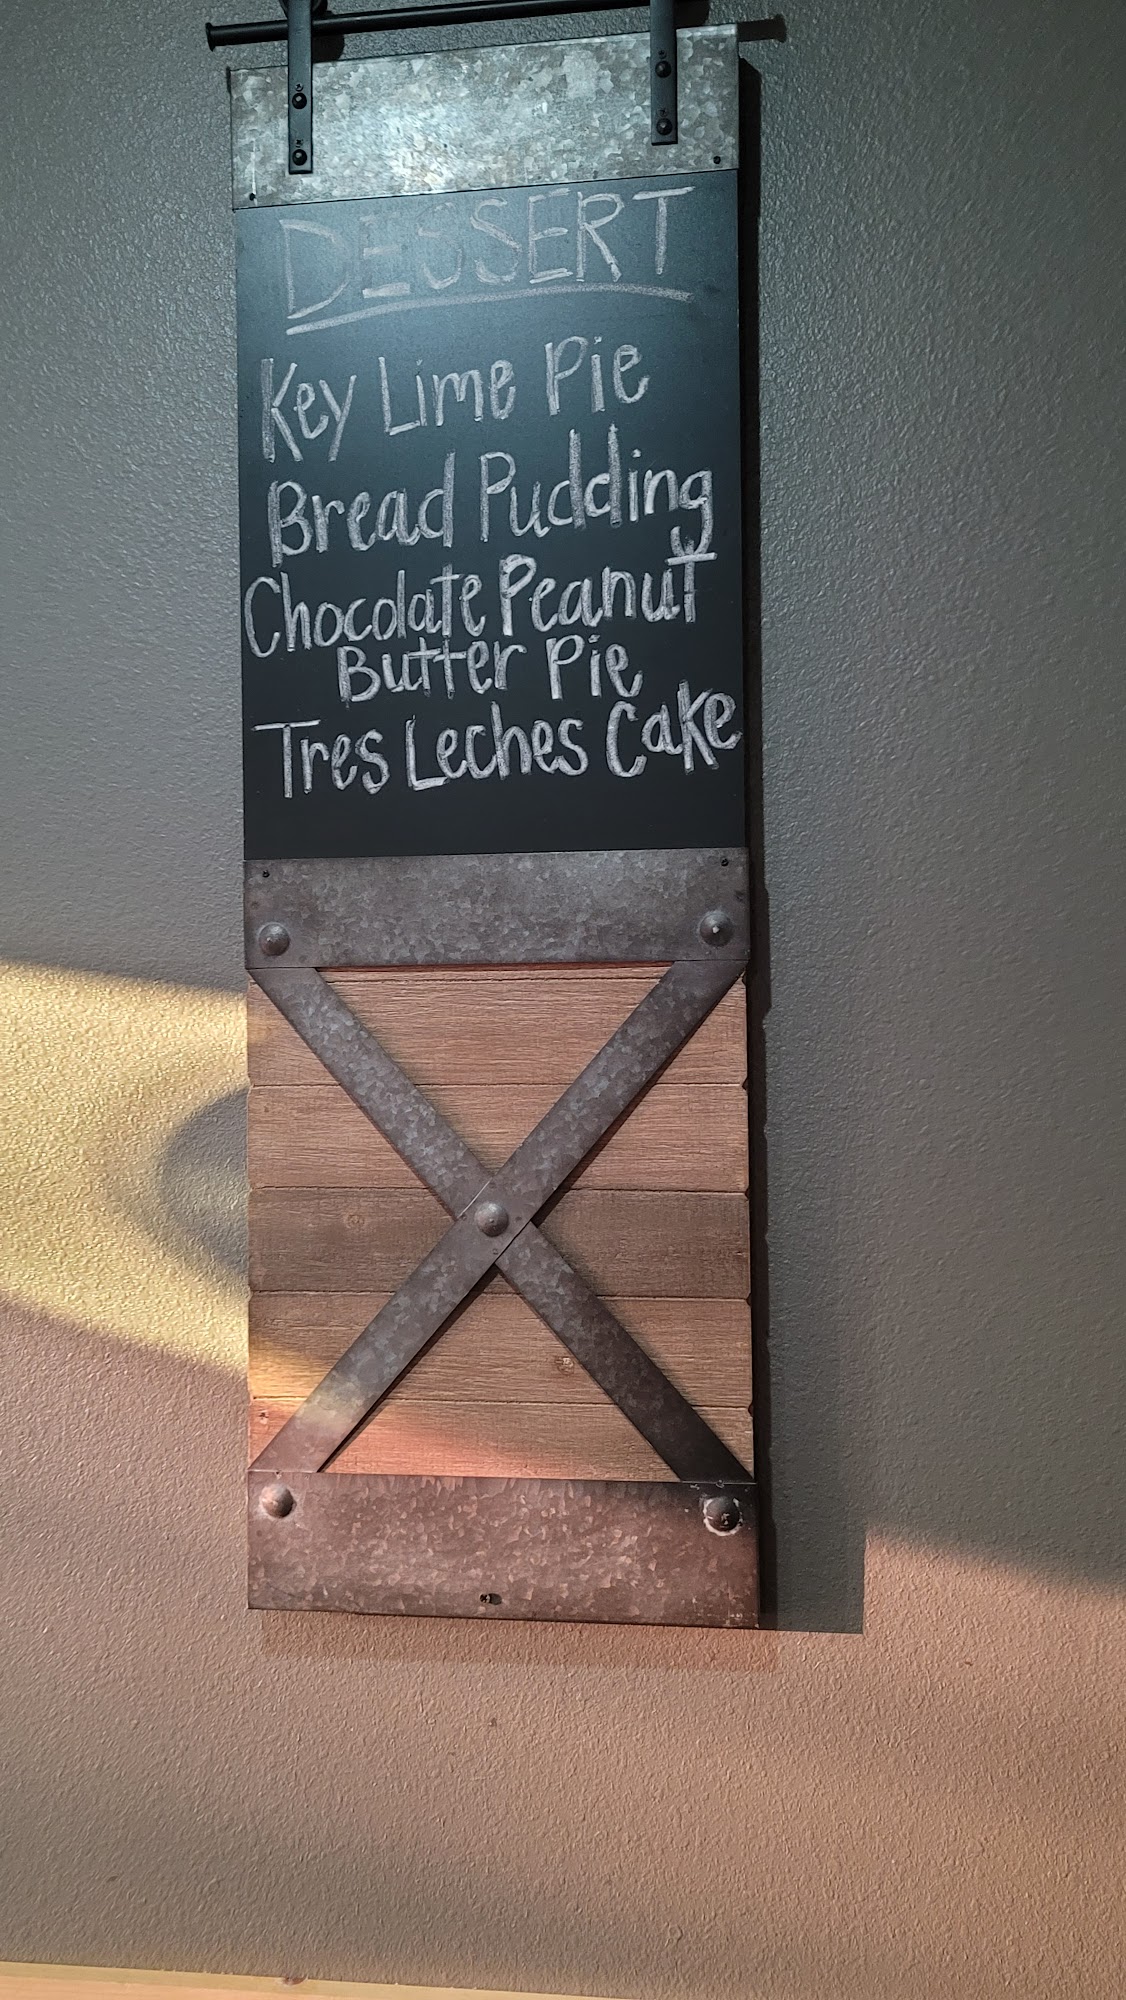 DESSERT
Key Lime Pie
Bread Pudding
Chocolate Peanut
Butter Pie
Tres Leches Cake